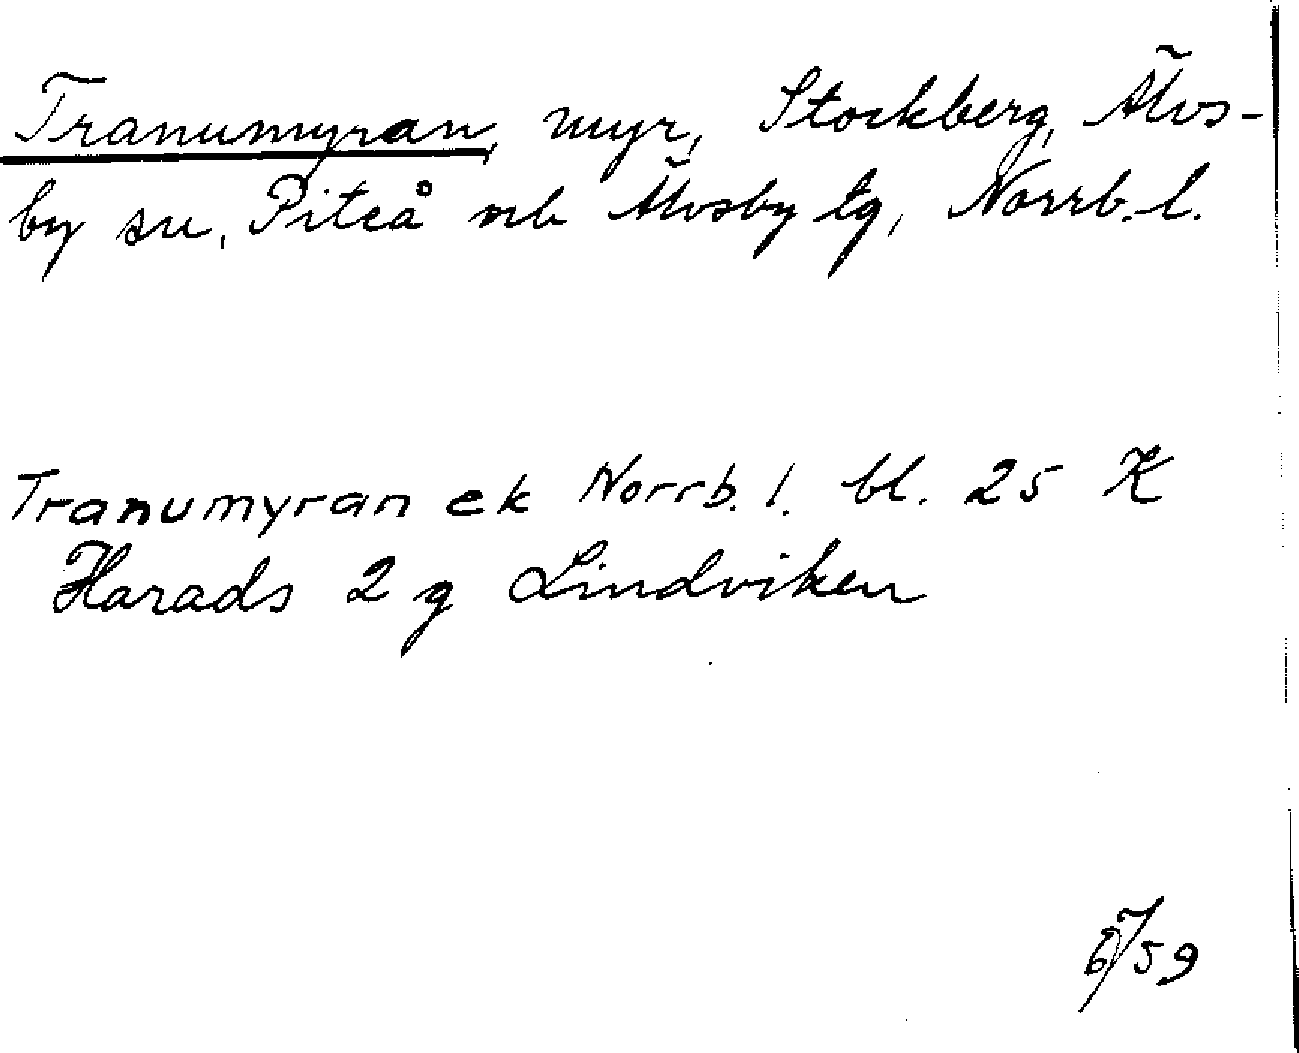 Tranumyran, myr, Stockberg, Älvs-
by sn, Piteå o Älvsby tg, Norrb. l.
Tranumyran ek Norrb. l. bl. 25 K
Harads 2 g Lindviken
59